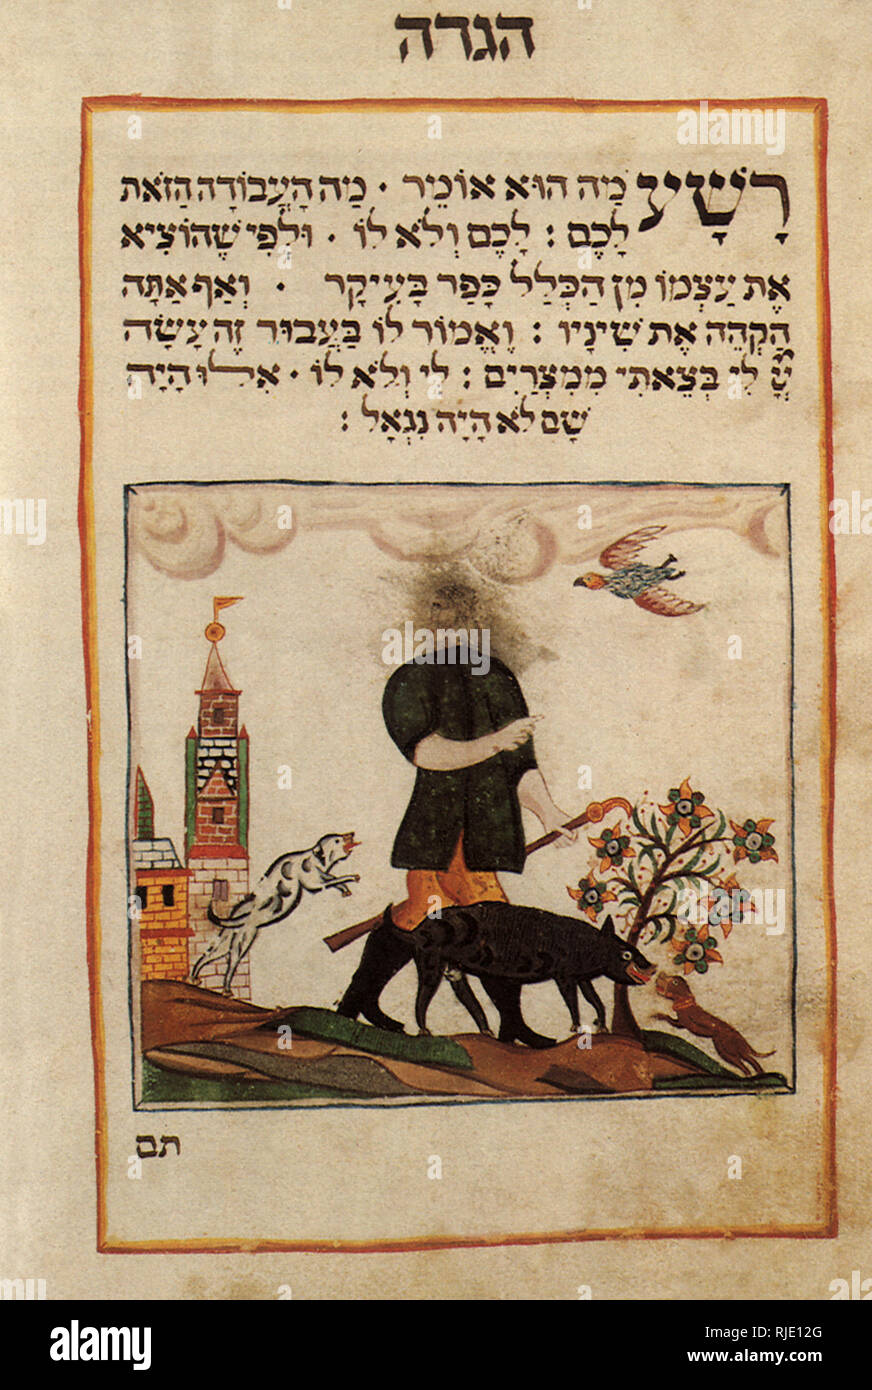 הגדה
רָשָׁע מַה הוּא אוֹמֵר · מַה הָעֲבוֹדָה הַזֹאת
לָכֶם : לָכֶם וְלֹא לוֹ · וּלְפִי שֶׁהוֹצִיא
אֶת עַצְמוֹ מִן הַכְּלַל כָּפַר בָּעִיקָר · וְאַף אַתָּה
הַקְהֵה אֶת שִׁינָיו : וֶאֱמוֹר לוֹ בַּעֲבוּר זֶה עָשָׂה
לִי בְּצֵאתִי מִמִצְרַיִם : לִי וְלֹא לוֹ · אִלוּ הָיָה
שָׁם לֹא הָיָה נִגְאָל :
תם
alamy
Image ID: RJE12G
www.alamy.com